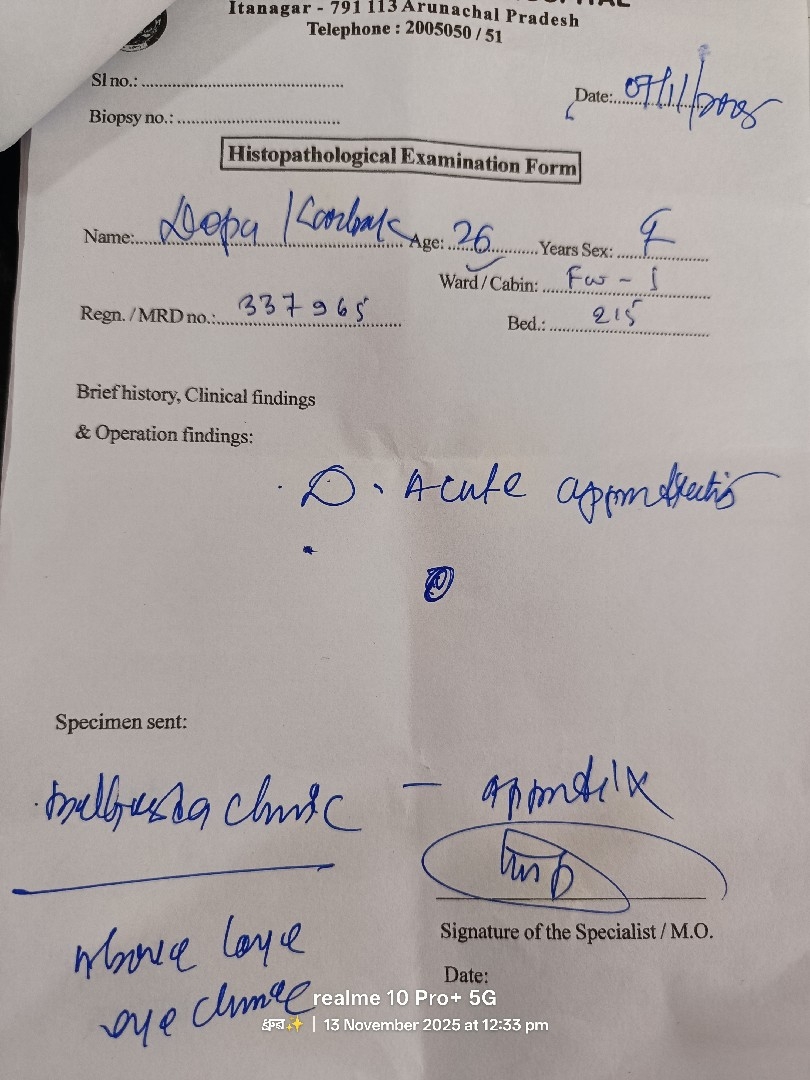 Itanagar - 791 113 Arunachal Pradesh
Telephone : 2005050 / 51
Sl no.:
Date: 07/11/2025
Biopsy no.:
Histopathological Examination Form
Name: Age: 26 Years Sex: F
Ward / Cabin: FW - I
Regn. / MRD no.: 337965
Bed.: 215
Brief history, Clinical findings
& Operation findings:
D. Acute appendicitis
Specimen sent:
clinic — appendix
Signature of the Specialist / M.O.
Above
eye clinic
Date:
realme 10 Pro+ 5G
13 November 2025 at 12:33 pm